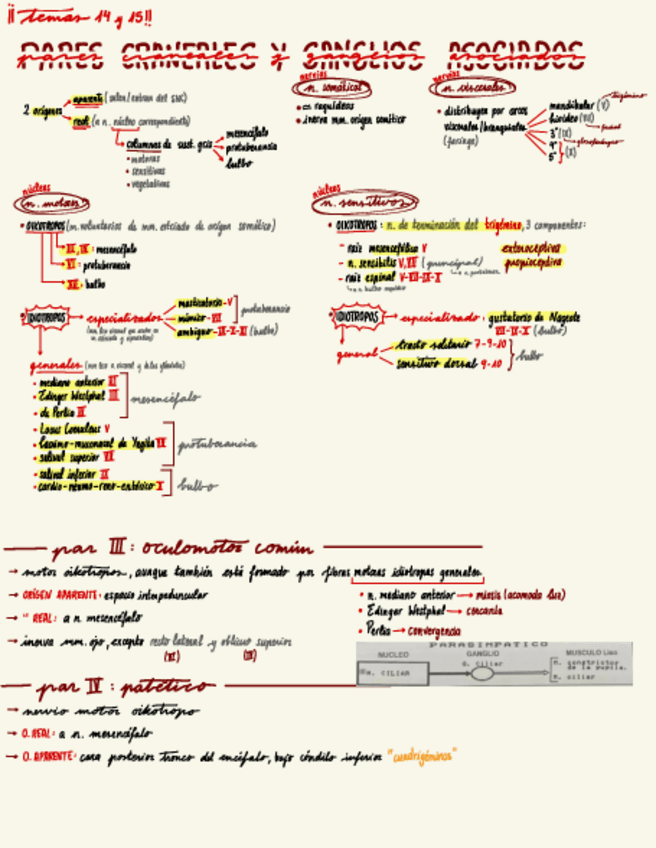 ¡¡temas 14 y 15!!
PARES CRANEALES Y GANGLIOS ASOCIADOS
pares craneales y ganglios asociados
2 orígenes
aparente (salen/entran del SNC)
real (a n. núcleo correspondiente)
columnas de sust. gris
• motoras
• sensitivas
• vegetativas
mesencéfalo
protuberancia
bulbo
nervios
n. somáticos
= raquídeos
• inerva mm. origen somítico
nervios
n. viscerales
• distribuyen por arcos
viscerales/branquiales
(faringe)
mandibular (V)
hioideo (VII)
3º (IX)
4º
5º
(X)
trigémino
facial
glosofaríngeo
núcleos
n. motores
• OIKOTROPOS (m. voluntarios de mm. estriado de origen somítico)
III, IV: mesencéfalo
VI: protuberancia
XII: bulbo
IDIOTROPOS
especializados
masticatorio - V
mímico - VII
protuberancia
ambiguo - IX-X-XI (bulbo)
generales
• mediano anterior III
• Edinger Westphal III
• de Perlia III
mesencéfalo
• Locus Coeruleus V
• lácrimo-muconasal de Yagita VII
• salival superior VII
protuberancia
• salival inferior IX
• cardio-neumo-reno-entérico X
bulbo
núcleos
n. sensitivos
• OIKOTROPOS: n. de terminación del trigémino, 3 componentes:
- raíz mesencefálica V
- n. sensibilis V, VII (principal)
- raíz espinal V-VII-IX-X
exteroceptiva
propioceptiva
IDIOTROPOS
especializado: gustatorio de Nageotte
VII-IX-X (bulbo)
general
tracto solitario 7-9-10
sensitivo dorsal 9-10
bulbo
par III: oculomotor común
→ motor oikotropos, aunque también está formado por fibras motoras idiotropas generales
→ ORIGEN APARENTE: espacio interpeduncular
→ " REAL: a n. mesencéfalo
→ inerva mm. ojo, excepto recto lateral y oblicuo superior
(VI)
(IV)
• n. mediano anterior → miosis (acomoda luz)
• Edinger Westphal → cercanía
• Perlia → convergencia
PARASIMPATICO
NUCLEO
GANGLIO
MUSCULO Liso
CILIAR
G. Ciliar
M. constrictor
de la pupila.
M. ciliar
par IV: patético
→ nervio motor oikotropo
→ O. REAL: a n. mesencéfalo
→ O. APARENTE: cara posterior tronco del encéfalo, bajo cóndilo inferior "cuadrigéminos"